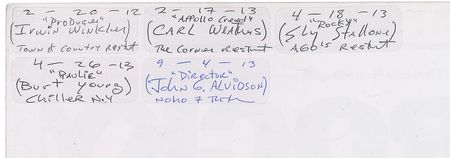 2 - 20 - 12
"Producer"
(Irwin Winkler)
Town & Country Restnt
2 - 17 - 13
"Apollo Creed"
(CARL Weathers)
The Corner Restnt
4 - 18 - 13
"Rocky"
(Sly Stallone)
AGO's Restnt
4 - 26 - 13
"Paulie"
(Burt Young)
Chiller N.Y
9 - 4 - 13
"Director"
(John G. Alvidson)
NoHo 7